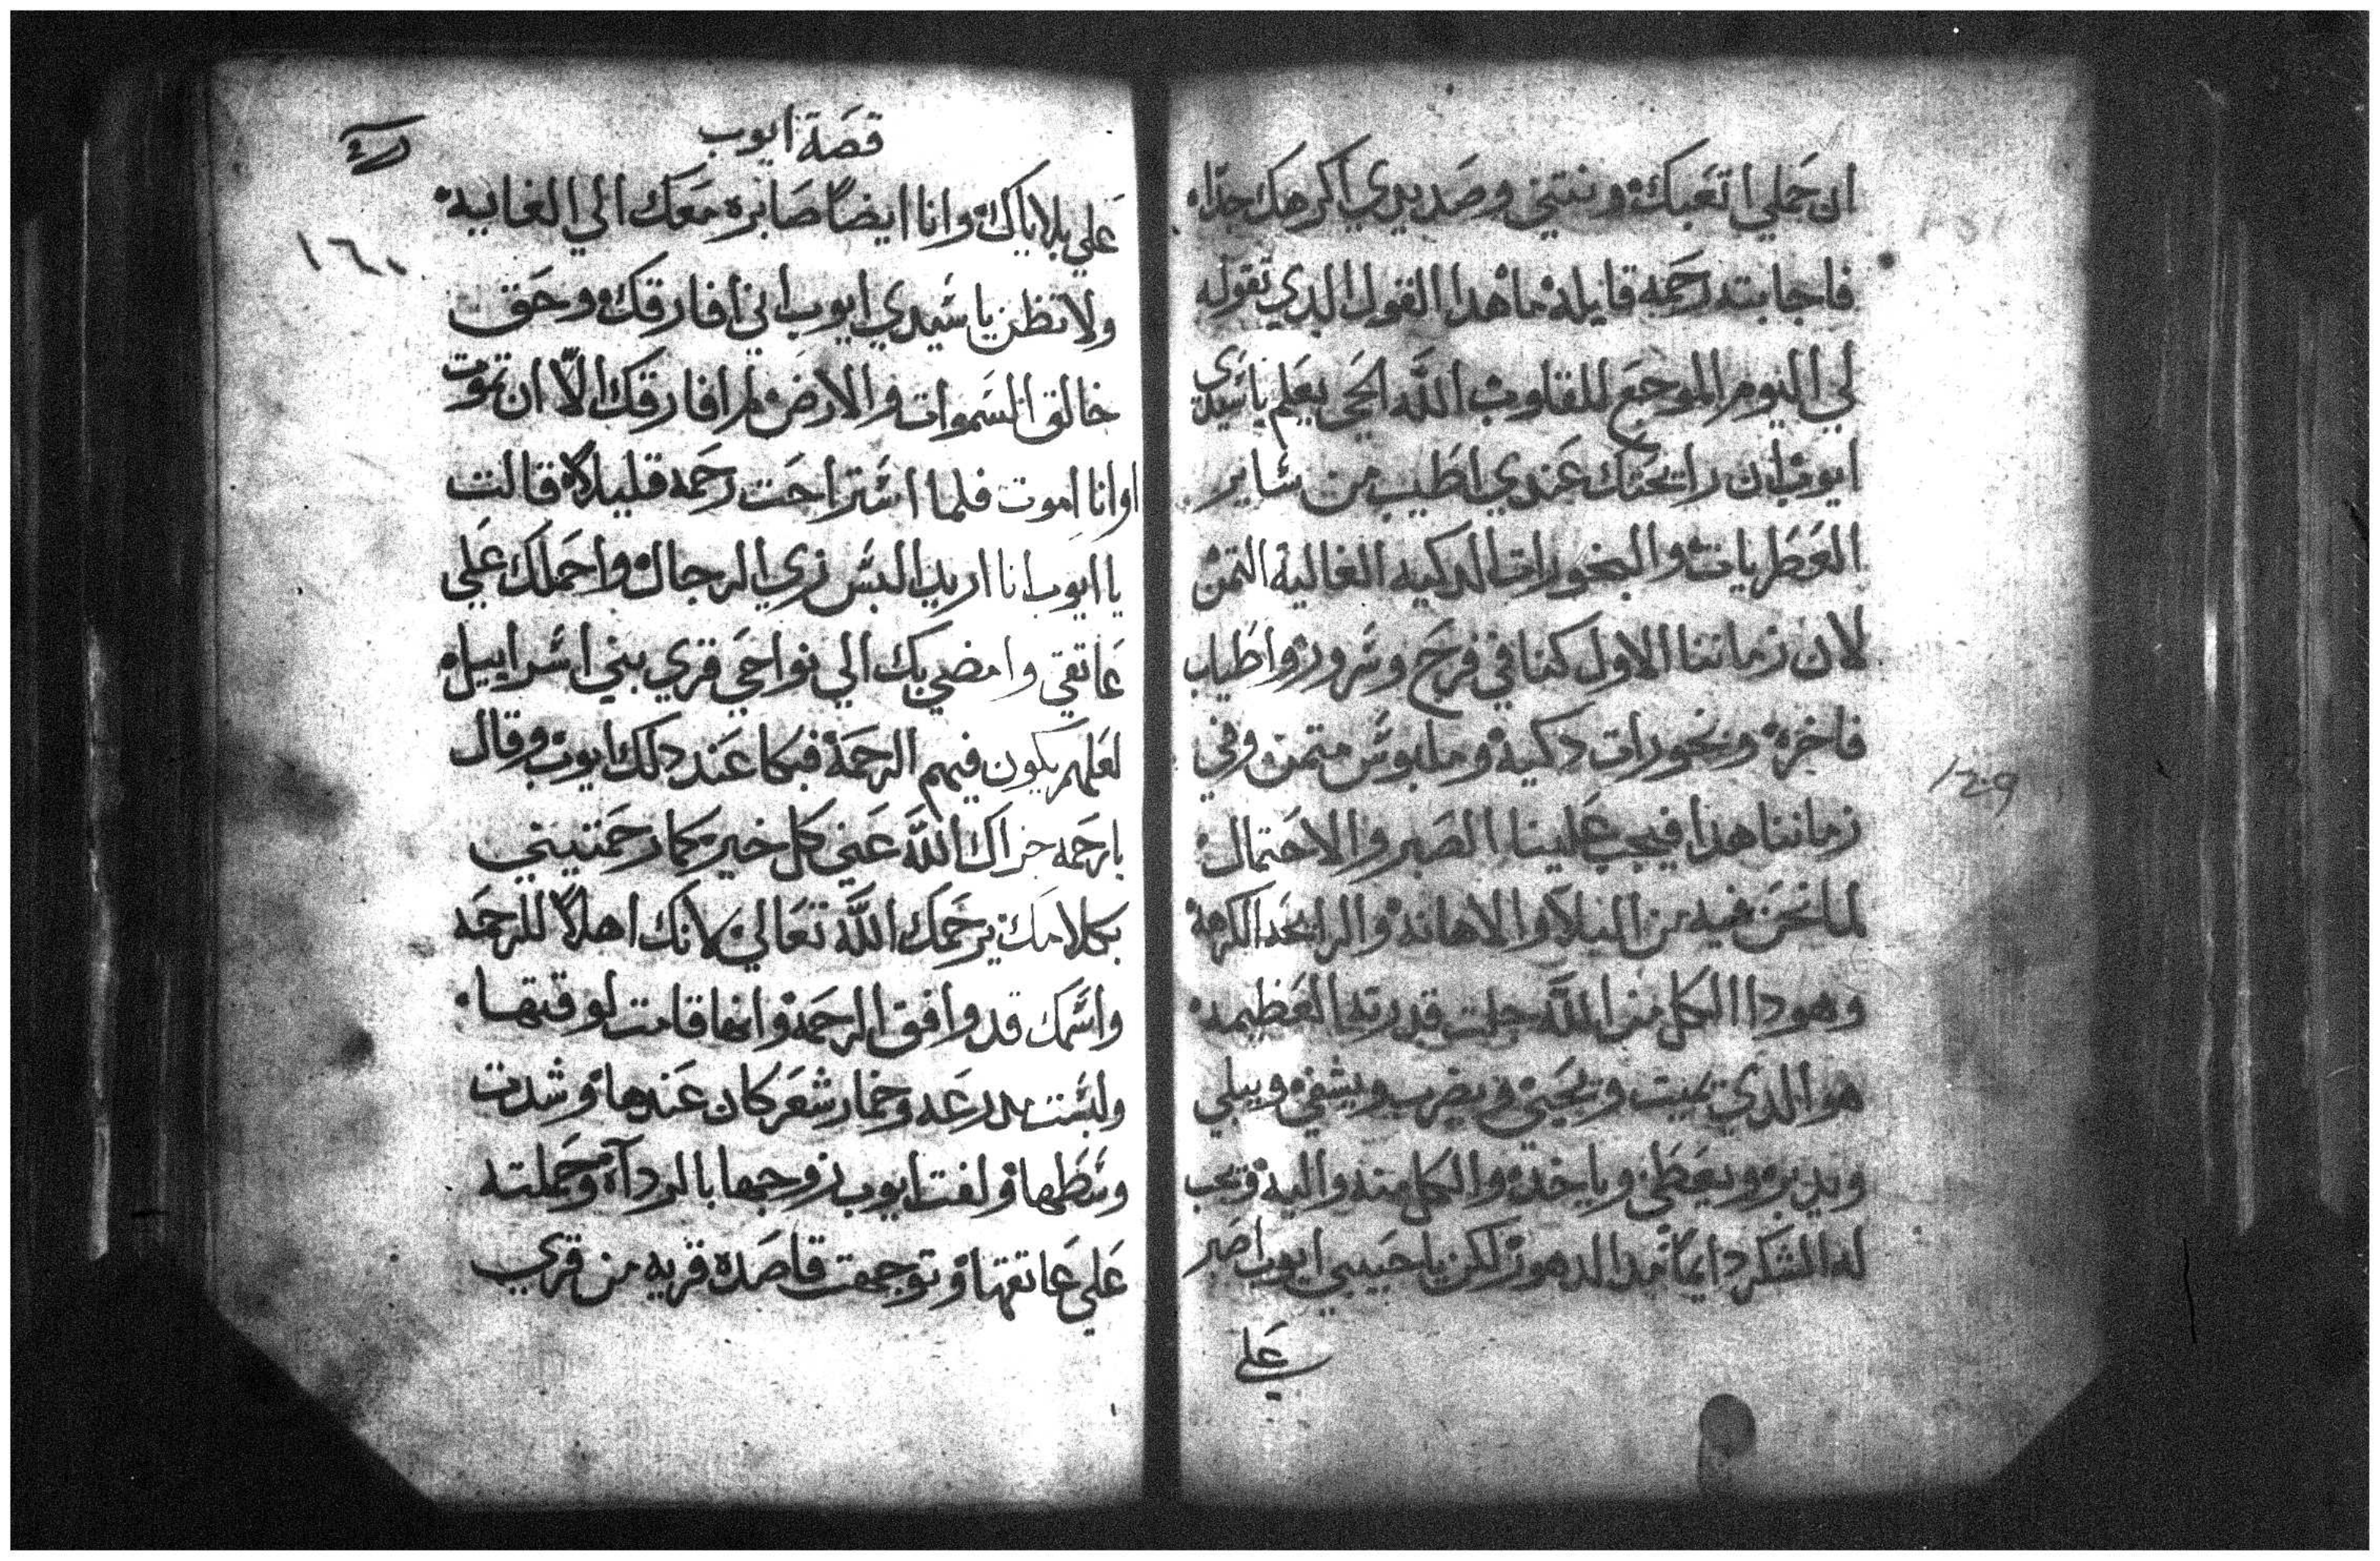 ان حملي اتعبك ونتني وصديدي اكرهك جدًا
فاجابته رحمه قايله ما هدا القول الدي تقوله
لي اليوم الموجع للقلوب الله الحي يعلم يا سيدي
ايوب ان رايحتك عندي اطيب من ساير
العطريات والبخورات الدكيه الغالية التمن
لان زماننا الاول كنا في فرح وسرور واطياب
فاخره وبخورات دكية وملبوس متمن وفي
زماننا هدا فيجب علينا الصبر والاحتمال
لما نحن فيه من البلآ والاهانه والرايحه الكرهة
وهودا الكل من الله جلت قدرته العظيمه
هو الدي يميت ويحيي ويضرب ويشفي ويبلي
ويدبر ويعطي وياخد والكل منه واليه ويجب
له الشكر دايمًا مدا الدهور لكن يا حبيبي ايوب اصبر
علي
١٥٩
قصة ايوب
١٦٠
علي بلاياك وانا ايضًا صابره معك الي الغايه
ولا تظن يا سيدي ايوب اني افارقك وحق
خالق السموات والارض لم افارقك الّا ان تموت
او انا اموت فلما استراحت رحمه قليلاً قالت
يا ايوب انا اريد البس زي الرجال واحملك علي
عاتقي وامضي بك الي نواحي قري بني اسراييل
لعلهم يكون فيهم الرحمة فبكا عند دلك ايوب وقال
يا رحمه جزاك الله عني كل خير كما رحمتيني
بكلامك يرحمك الله تعالي لانك اهلاً للرحمه
واسمك قد وافق الرحمة وانها قامت لوقتها
ولبست مدرعه وخمار شعر كان عندها وشدت
وسطها ولفت ايوب زوجها بالردآء وحملته
علي عاتقها وتوجهت قاصده قريه من قري